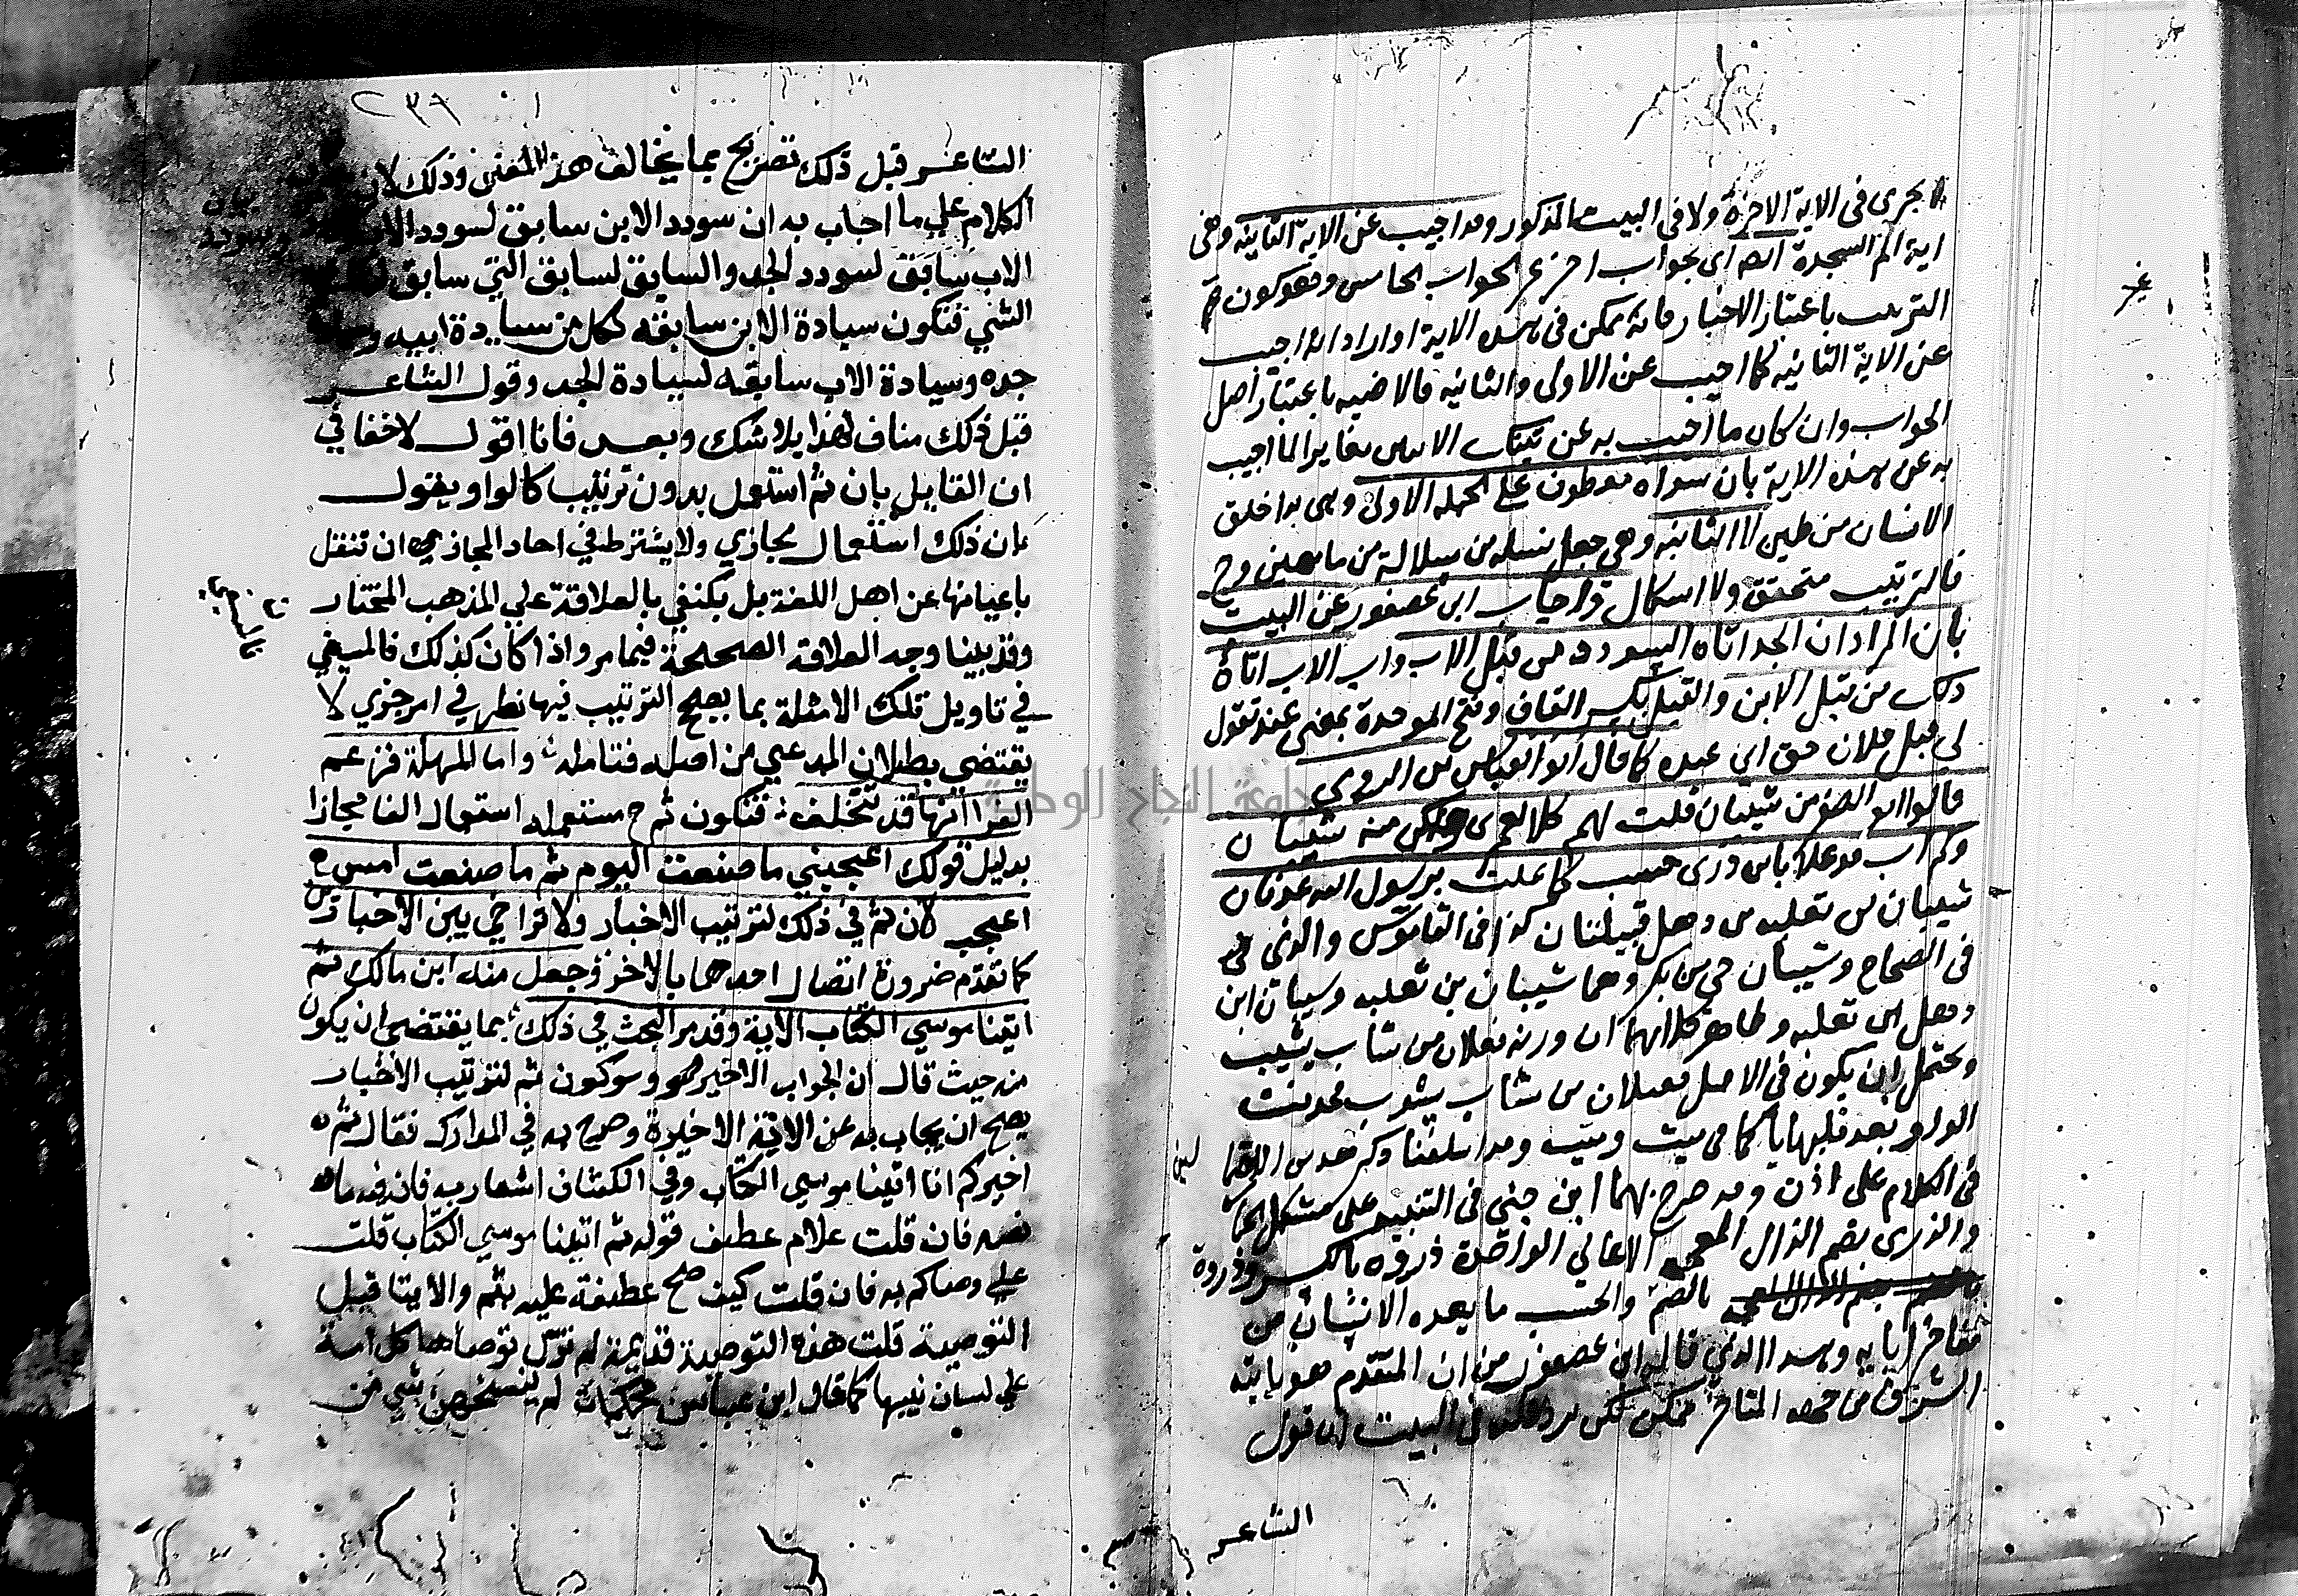 لا يجرى فى الاية الاخرة ولا فى البيت المذكور وقد اجيب عن الاية الثانيه وهى
اية الم السجدة ايضا اى بجواب اخر غير الجواب الخامس وهو كون ثم
الترتيب باعتبار الاخبار فانه يمكن فى هذه الاية اواراد انه اجيب
عن الاية الثانيه كما اجيب عن الاولى والثانيه فالاضيه باعتبار اصل
الجواب وان كان ما اجيب به عن تينك الايتين مغايرا لما اجيب
به عن هذه الاية بان سواه معطوف على الجمله الاولى وهى بدا خلق
الانسان من طين لا الثانيه وهى جعل نسله من سلالة من ما مهين وح
فالترتيب متحقق ولا اشكال واجاب ابن عصفور عن البيت
بان المراد ان الجد اتاه السودد من قبل الاب واب الاب اتاه
ذلك من قبل الابن والقبل بكسر القاف وفتح الموحدة بمعنى عند تقول
لى قبل فلان حق اى عنده كما قال ابو العباس بن الرومى
قالوا ابو الصقر من شيبان قلت لهم كلا لعمرى ولكن منه شيبان
وكم اب قد علا بابن ذرى حسب كما علت برسول الله عدنان
شيبان بن ثعلبه بن ذهل قبيلتان كذا فى القاموس والذى فى
فى الصحاح وشيبان حى من بكر وهما شيبان بن ثعلبه وشيبان ابن
ذهل ابن ثعلبه وظاهر كلامهما ان وزنه فعلان من شاب يشيب
ويحتمل ان يكون فى الاصل فيعلان من شاب يشوب فحذفت
الواو بعد قلبها يا كما فى ميت وميت وقد اسلفنا ذكر هذين
فى الكلام على اذن وقد صرح بهما ابن جنى فى التنبيه على مشكل
والذرى بضم الذال المعجمه الاعالى الواحدة ذروه بالكسر وذروة
بالضم والحسب ما يعده الانسان من
مفاخر ابايه وهذا الذي قاله ابن عصفور من ان المتقدم هو ياتيه
الشرف من جهة المتاخر ممكن لكن يرد فى البيت ان قول
الشاعر
٢٣٦
الشاعر قبل ذلك تصريح بما يخالف هذا المعنى وذلك لان
الكلام على ما اجاب به ان سودد الابن سابق لسودد الاب
الاب سابق لسودد الجد والسابق لسابق الشي سابق لذلك
الشي فتكون سيادة الابن سابقه لكل من سيادة ابيه و
جده وسيادة الاب سابقه لسيادة الجد وقول الشاعر
قبل ذلك مناف لهذا بلا شك وبعد فانا اقول لاخفا في
ان القايل بان ثم استعمل بدون ترتيب كالواو يقول
بان ذلك استعمال مجازي ولا يشترط في احاد المجازي ان تنقل
باعيانها عن اهل اللغة بل يكتفي بالعلاقة علي المذهب المختار
وقد بينا وجه العلاقة الصحيحة فيما مر واذا كان كذلك فالسعي
في تاويل تلك الامثلة بما يصح الترتيب فيها نظر في امر جزي لا
يقتضي بطلان المدعي من اصله فتامله واما المهلة فزعم
الفرا انها قد تتخلف فتكون ثم ح مستعمله استعمال الفا مجازا
بدليل قولك اعجبني ما صنعت اليوم ثم ما صنعت امس
اعجب لان ثم في ذلك لترتيب الاخبار ولا تراخي بين الاخبارين
كما تقدم ضرورة اتصال احدهما بالاخر وجعل منه ابن مالك ثم
اتينا موسي الكتاب الاية وقد مر البحث في ذلك بما يقتضي ان يكون
منه حيث قال ان الجواب الاخير وهو كون ثم لترتيب الاخبار
يصح ان يجاب به عن الاية الاخيرة وصرح به في المدارك فقال ثم
اخبركم انا اتينا موسي الكتاب وفي الكشاف اشعار به فانه قد ما
نصه فان قلت علام عطف قوله ثم اتينا موسي الكتاب قلت
علي وصاكم به فان قلت كيف صح عطفه عليه بثم والايتا قبل
التوصية قلت هذه التوصية قديمة لم تزل توصاها كل امة
علي لسان نبيها كما قال ابن عباس محكمات لم ينسخهن شي من